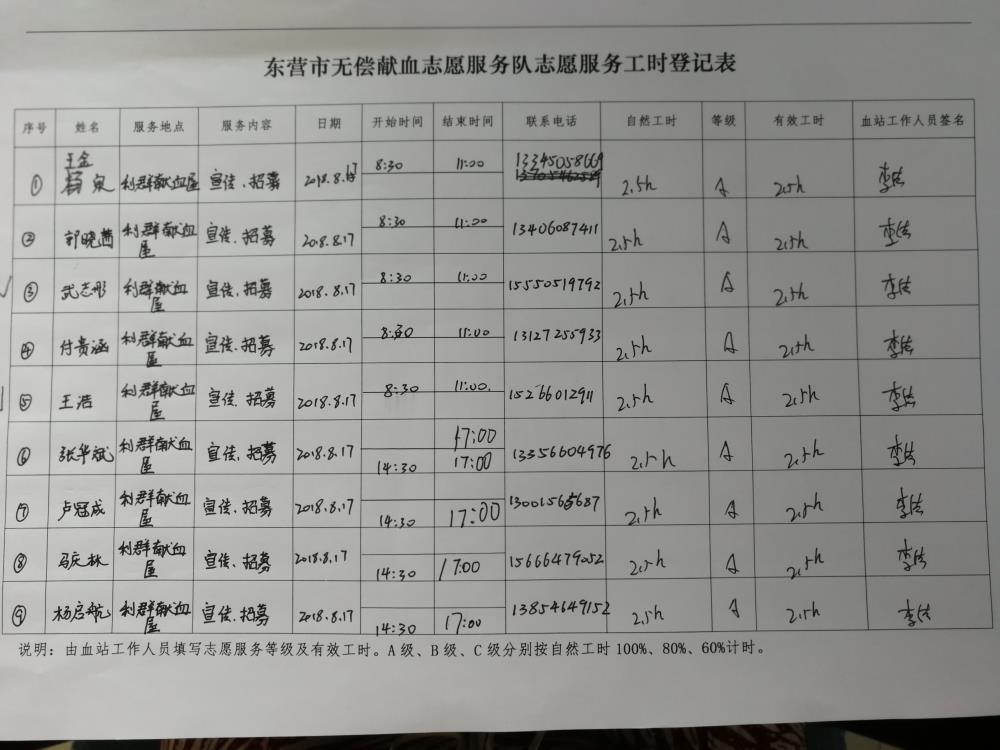 东营市无偿献血志愿服务队志愿服务工时登记表
序号 姓名 服务地点 服务内容 日期 开始时间 结束时间 联系电话 自然工时 等级 有效工时 血站工作人员签名
① 王金泉 利群献血屋 宣传、招募 2018.8.17 8:30 11:00 13345058669 2.5h A 2.5h
② 郭晓茜 利群献血屋 宣传、招募 2018.8.17 8:30 11:00 13406087411 2.5h A 2.5h
③ 武志彤 利群献血屋 宣传、招募 2018.8.17 8:30 11:00 15550519792 2.5h A 2.5h
④ 付贵涵 利群献血屋 宣传、招募 2018.8.17 8:30 11:00 13127255933 2.5h A 2.5h
⑤ 王浩 利群献血屋 宣传、招募 2018.8.17 8:30 11:00 15266012911 2.5h A 2.5h
17:00
⑥ 张华斌 利群献血屋 宣传、招募 2018.8.17 14:30 17:00 13356604976 2.5h A 2.5h
⑦ 卢冠成 利群献血屋 宣传、招募 2018.8.17 14:30 17:00 13001565687 2.5h A 2.5h
⑧ 马庆林 利群献血屋 宣传、招募 2018.8.17 14:30 17:00 15666479052 2.5h A 2.5h
⑨ 杨启航 利群献血屋 宣传、招募 2018.8.17 14:30 17:00 13854649152 2.5h A 2.5h
说明：由血站工作人员填写志愿服务等级及有效工时。A级、B级、C级分别按自然工时100%、80%、60%计时。